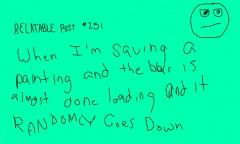 RELATABLE POST #251
When I'm saving a
painting and the bar is
almost done loading and it
RANDOMLY GOES DOWN